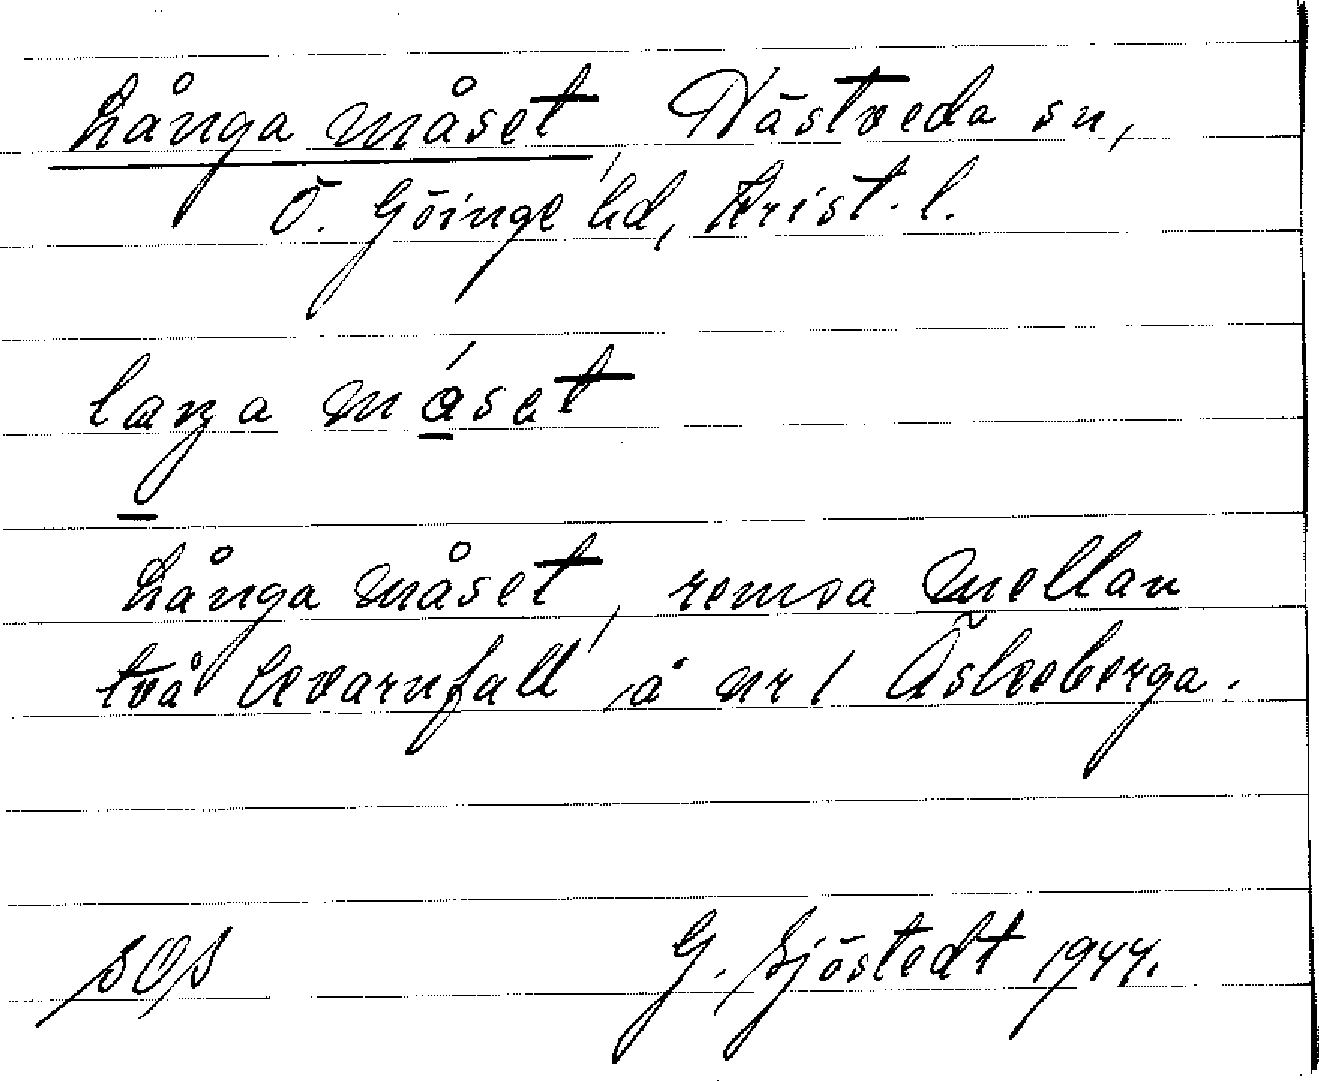 Långa måset, Nästveda sn,
Ö. Göinge hd, Krist. l.
måset
Långa måset, remsa mellan
två kvarnfall, å nr 1 Äskeberga.
SOS G. Sjöstedt 1944.